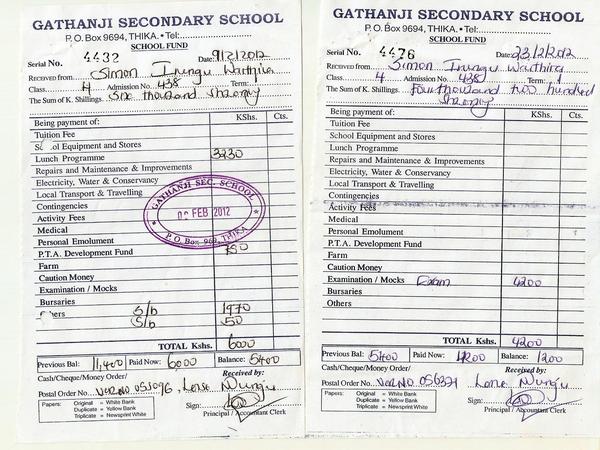 GATHANJI SECONDARY SCHOOL
P. O. Box 9694, THIKA. • Tel:
SCHOOL FUND
Serial No. 4432 Date: 9/2/2012
Received from Simon Irungu Warthira
Class 4 Admission No. 438 Term:
The Sum of K. Shillings Six thousand
Being payment of: KShs. Cts.
Tuition Fee
School Equipment and Stores
Lunch Programme 3230
Repairs and Maintenance & Improvements
Electricity, Water & Conservancy
Local Transport & Travelling
Contingencies
Activity Fees
Medical
Personal Emolument
P.T.A. Development Fund 750
Farm
Caution Money
Examination / Mocks
Bursaries
Others S/b 1970
S/b 50
TOTAL Kshs. 6000
Previous Bal: 11,400 Paid Now: 6000 Balance: 5400
Cash/Cheque/Money Order/ Received by:
Postal Order No.
Papers: Original = White Bank
Duplicate = Yellow Bank
Triplicate = Newsprint White
Sign:
Principal / Accountant Clerk
GATHANJI SEC. SCHOOL
FEB 2012
P. O. Box 969, THIKA
GATHANJI SECONDARY SCHOOL
P. O. Box 9694, THIKA. • Tel:
SCHOOL FUND
Serial No. 4476 Date: 23/2/2012
Received from Simon Irungu Warthira
Class 4 Admission No. 438 Term: 1
The Sum of K. Shillings Four thousand two hundred
Being payment of: KShs. Cts.
Tuition Fee
School Equipment and Stores
Lunch Programme
Repairs and Maintenance & Improvements
Electricity, Water & Conservancy
Local Transport & Travelling
Contingencies
Activity Fees
Medical
Personal Emolument
P.T.A. Development Fund
Farm
Caution Money
Examination / Mocks Exam 4200
Bursaries
Others
TOTAL Kshs. 4200
Previous Bal: 5400 Paid Now: 4200 Balance: 1200
Cash/Cheque/Money Order/ Received by:
Postal Order No.
Papers: Original = White Bank
Duplicate = Yellow Bank
Triplicate = Newsprint White
Sign:
Principal / Accountant Clerk